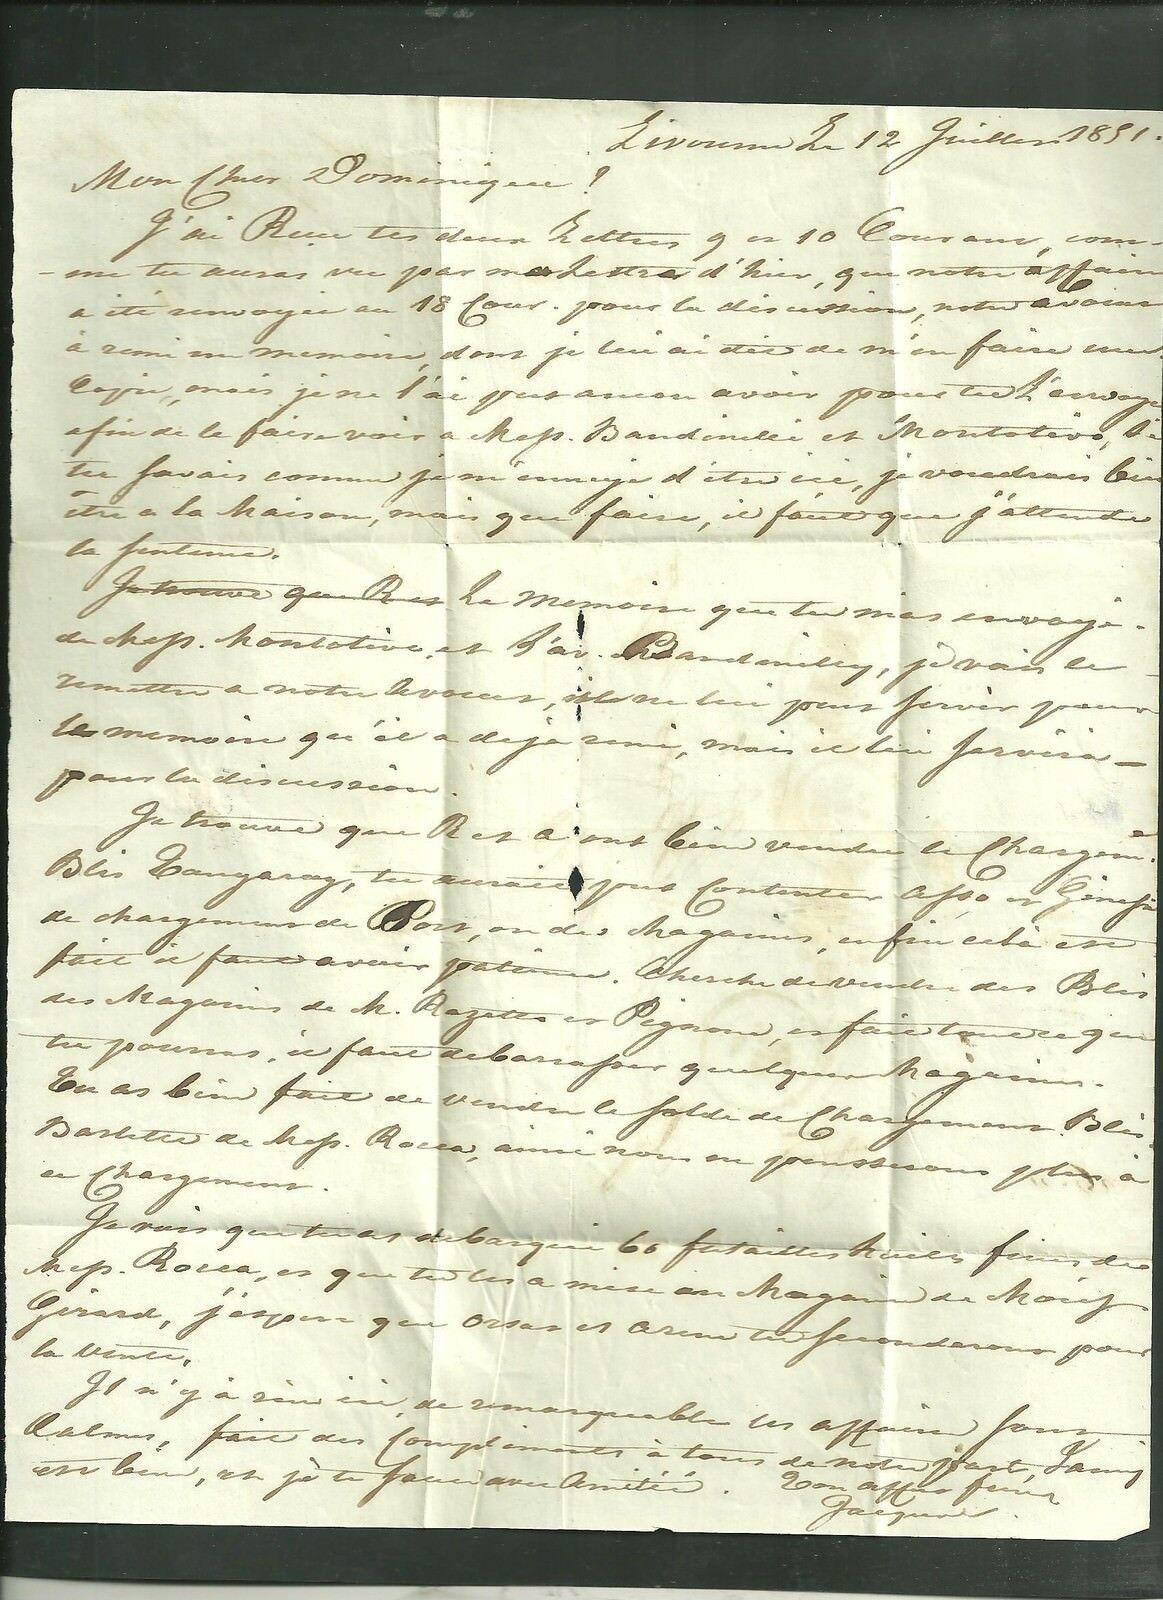 Livourne Le 12 Juillet 1851.
Mon Cher Dominique!
J'ai Reçu tes deux Lettres 9 et 10 Courant, com-
-me tu auras vu par ma Lettre d'hier, que notre affaire
a été renvoyée au 18 Cour. pour la discussion, notre avocat
à remi un memoire, dont je lui ai dit de m'en faire une
Copie, mais je ne l'ai pas ancor avoir pour te L'envoyé
afin de le faire voir a Mess. Bandinelli et Montotivo, Si
tu savais comme je m'ennuje d'être ici, je voudrais bien
être a la Maison, mais que faire, il faut que j'attende
la sentence.
Je trouve que R et Le memoire que tu m'as envoyé
de Mess. Montotivo et l'av. Bandinelly, je vais le
remettre a notre Avocat, il ne lui peut servir pour
le memoire qu'il a dejà remi, mais il lui servira
pour la discussion.
Je trouve que R et A ont bien vendu le Chargemt
Blés Tangarog, tu aurais put contenter et
de chargement de Port, ou des Magasins, enfin cela est
fait il faut avoir patience. Cherche de vendre des Blés
des Magasins de M. Razetto et Pignone, et fait tout ce que
tu pourras, il faut debarasser quelques Magasins.
Tu as bien fait de vendre le solde de Chargement Blés
Barlette de Mess. Rocca, ainsi nous ne pensserons plus à
ce Chargement.
Je vois que tu as debarqué 60 futailles huiles fines de
Mess. Rocca, et que tu les a mise au Magasin de
Girard, j'espère que et te seconderont pour
la vente.
Il n'y à rien ici, de remarquable les affaires sont
Calmes, fait des Compliments à tous de notre part, Fanny
est bien, et je te salue avec Amitié. Ton affec. frère
Jacques.